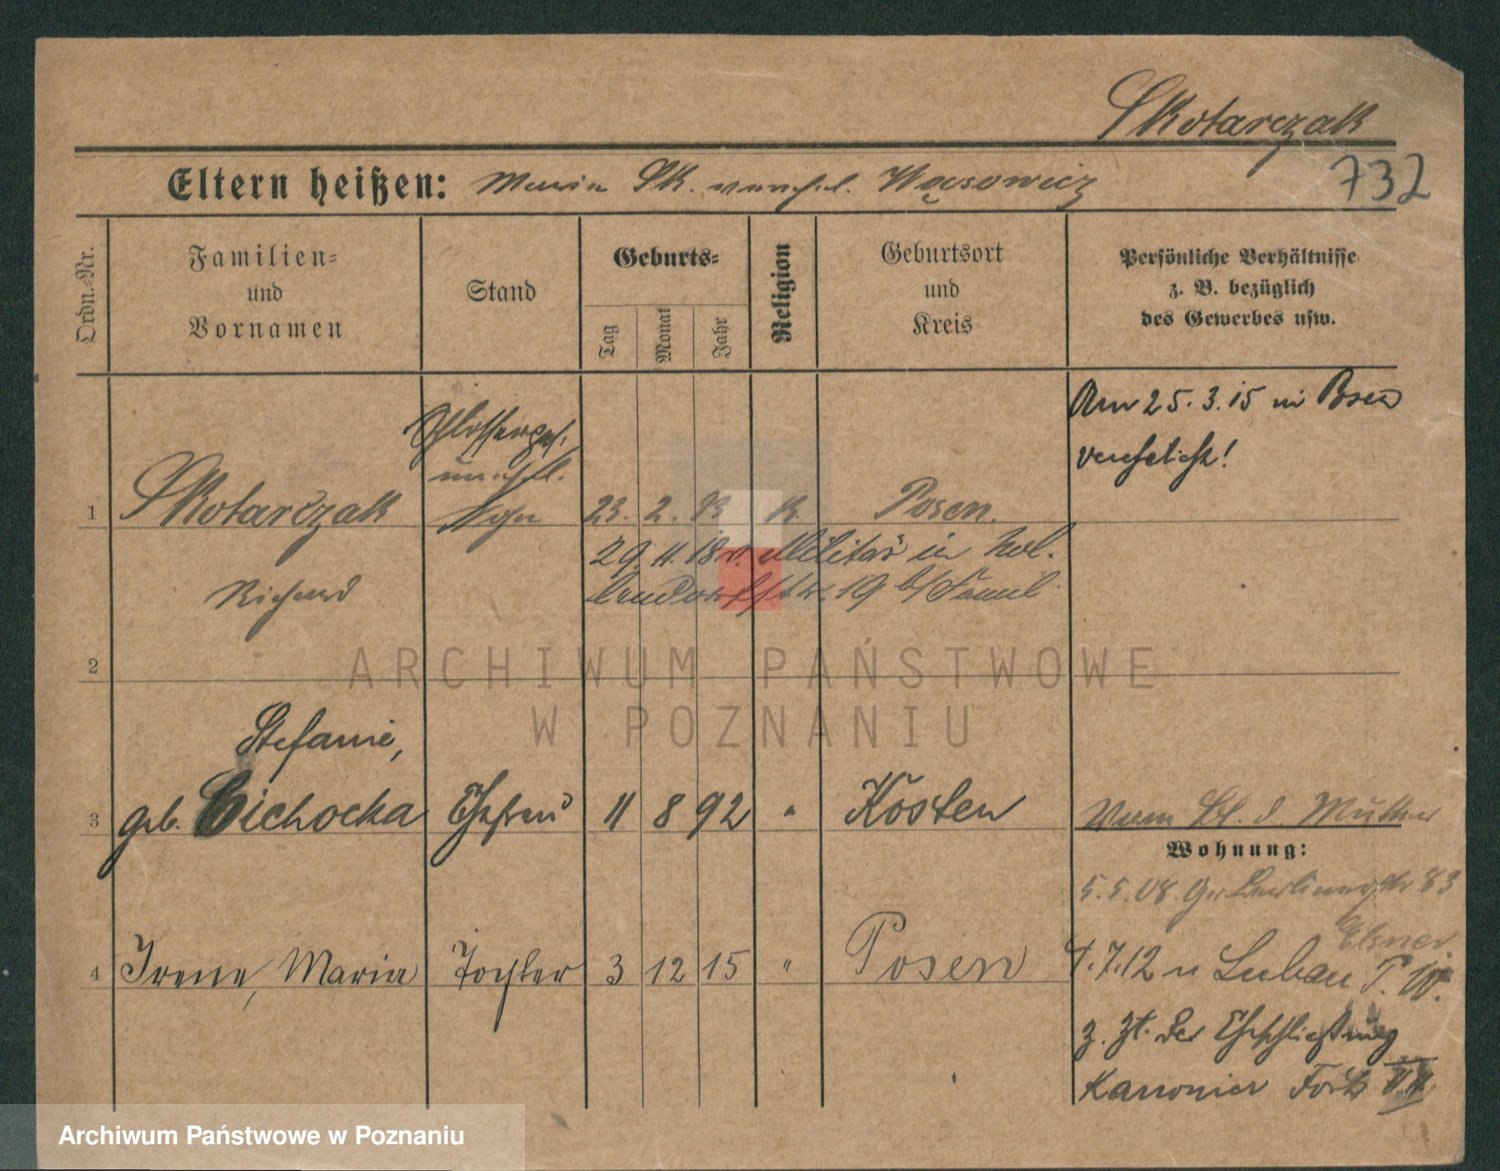 Skotarczak
732
Eltern heißen: Maria Sk. verehel. Wąsowicz
Ordn.-Nr.
Familien-
und
Vornamen
Stand
Geburts-
Tag
Monat
Jahr
Religion
Geburtsort
und
Kreis
Persönliche Verhältnisse
z. B. bezüglich
des Gewerbes usw.
Am 25.3.15 in Posen
verehelicht!
Schlosserges.
unehel.
1 Skotarczak Sohn 23. 2. 93 K. Posen.
29.11.18 v. Militär in
Richard
19 b/ Famil
2
Stefanie,
3 geb. Cichocka Ehefrau 11 8 92 " Kosten
Vom Bl. d Mutter
Wohnung:
5.5.08. Gr Berlinerstr 83
Elsner
4 Irene, Maria Tochter 3 12 15 " Posen
4.7.12 n Luban P. W.
z. Zt. der Eheschließung
Kanonier
ARCHIWUM PAŃSTWOWE
W POZNANIU
Archiwum Państwowe w Poznaniu